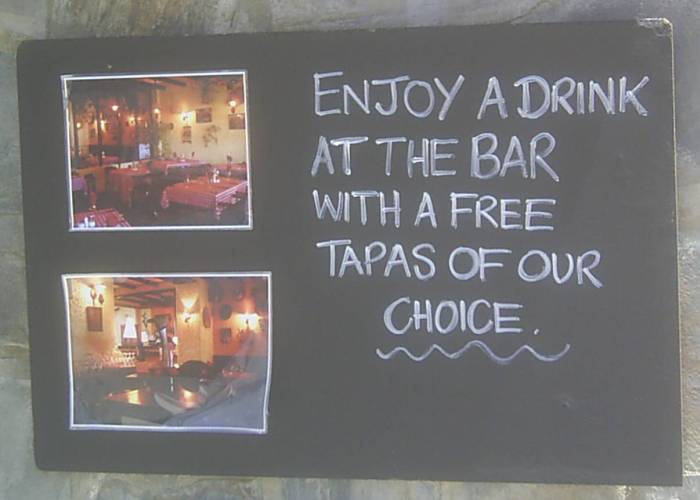 ENJOY A DRINK
AT THE BAR
WITH A FREE
TAPAS OF OUR
CHOICE.